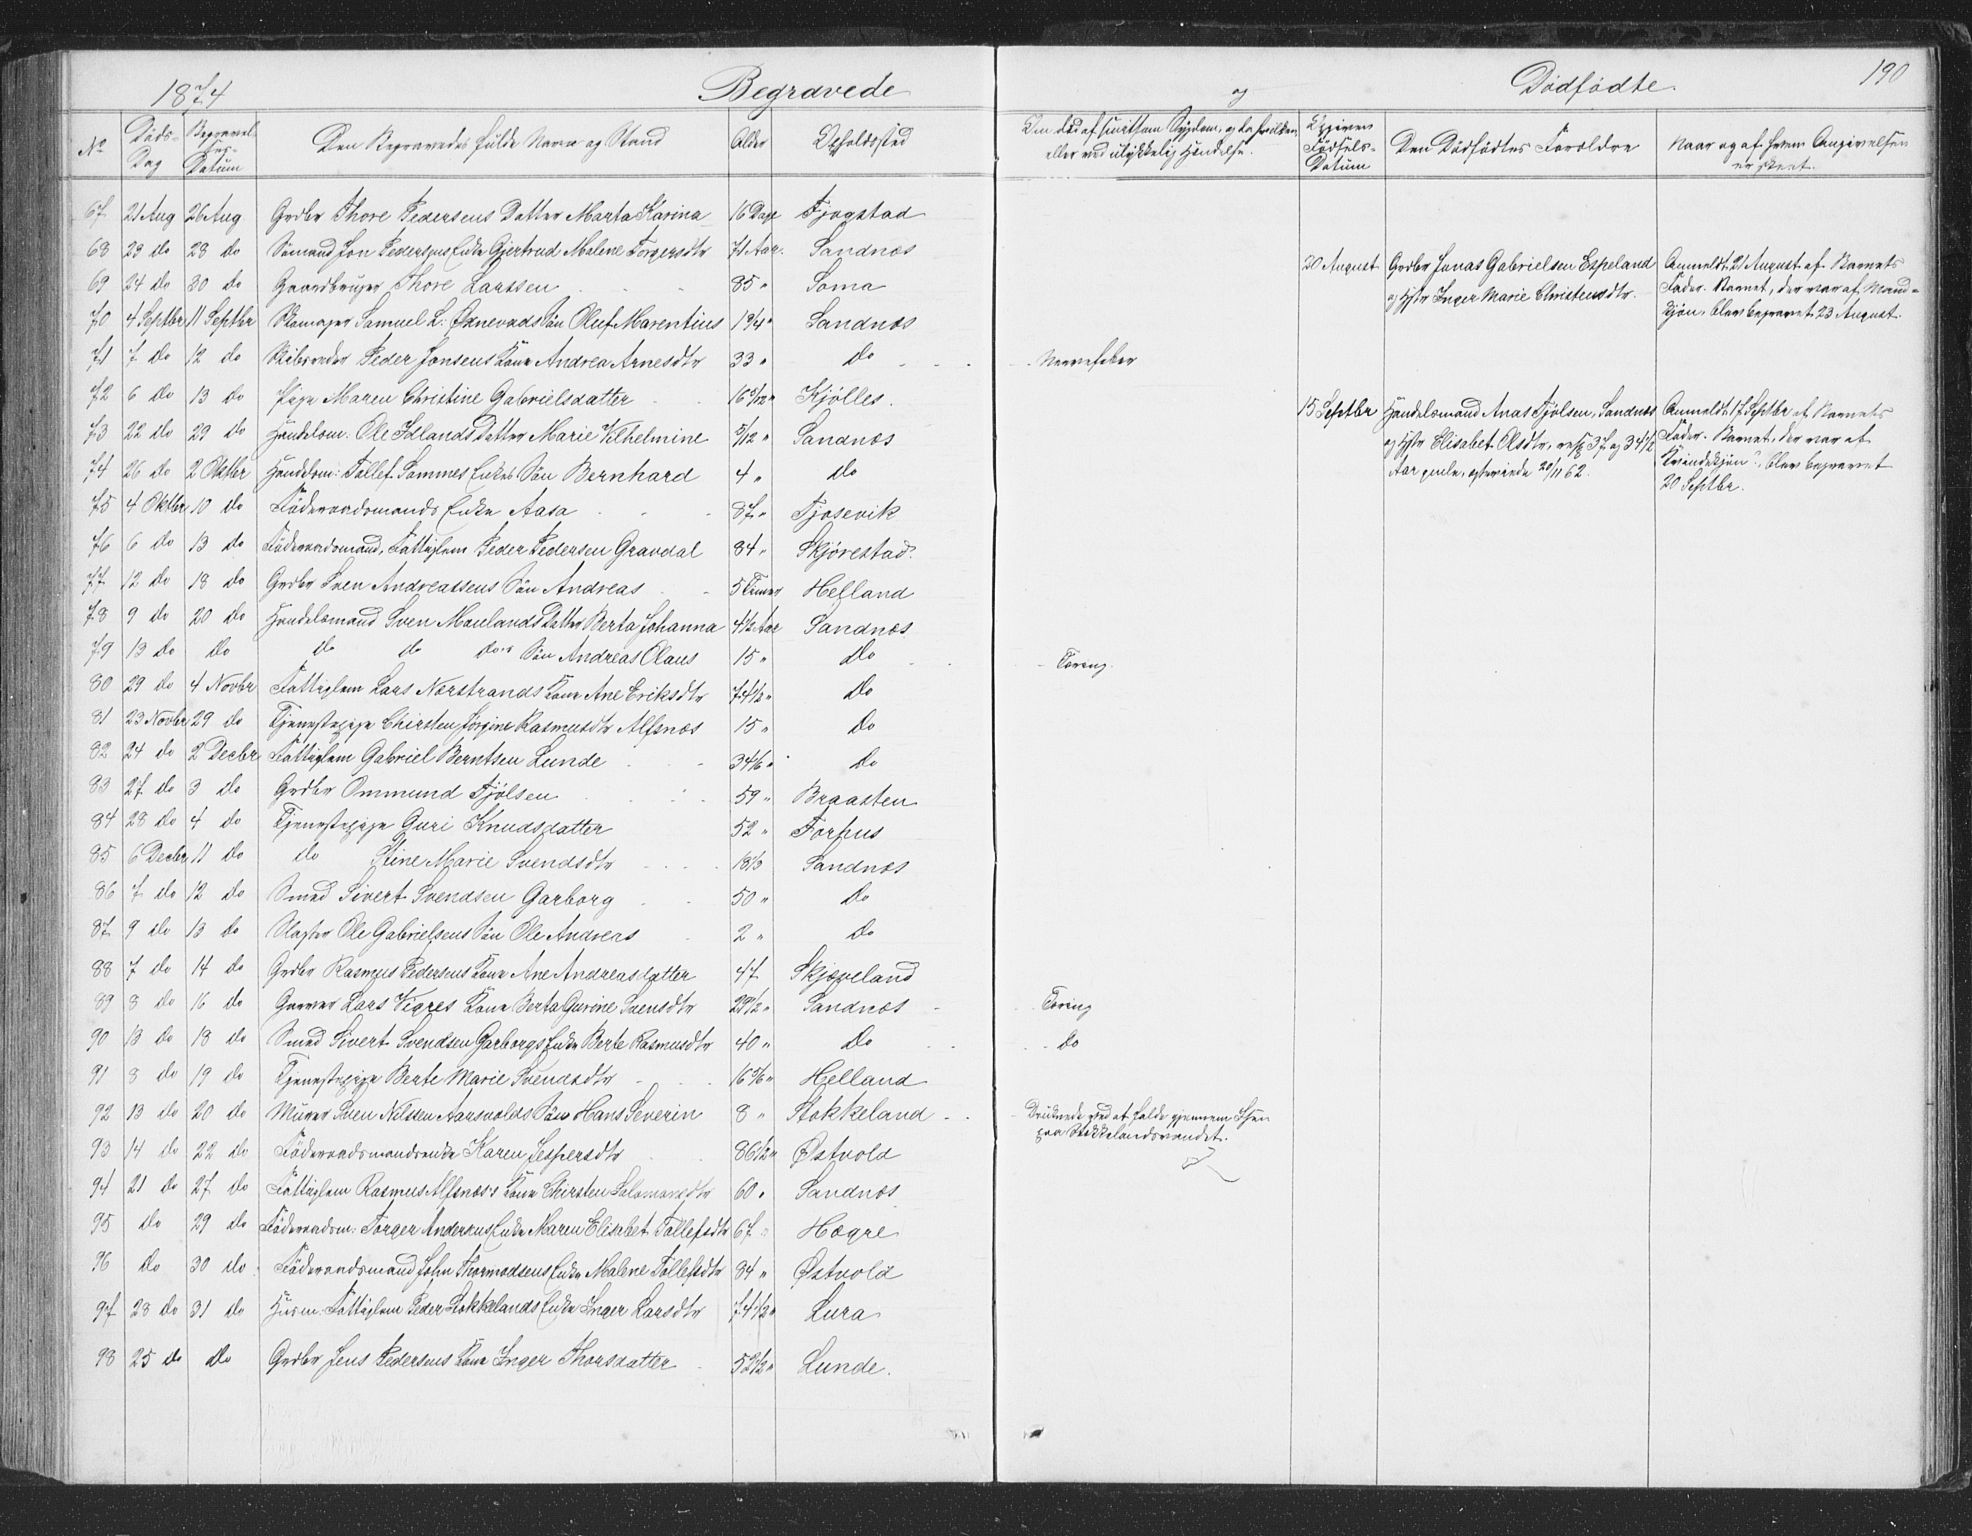 1874 Begravede og Dødfødte 190
No Døds-Dag Begravelses-Datum Den Begravedes fulde Navn og Stand Alder Opholdssted Om død af smitsom Sygdom, og da hvilken, eller ved ulykkelig Hændelse. Opgiven Fødsels-Datum Den Dødfødtes Forældre Naar og af hvem Angivelsen er skeet.
67 21 Aug 26 Aug Grdbr Thore Pedersens Datter Marta Karina 16 Dage Fjogstad
68 23 do 28 do Sømand Jon Pedersens Enke Gjertrud Malene Torgersdtr 71 Aar. Sandnæs
69 24 do 30 do Gaardbruger Thore Larssen 85 " Soma
70 4 Septbr 11 Septbr Skomager Samuel L: Øxnevads Søn Oluf Marentius 1 3/4 " Sandnæs
71 7 do 12 do Peder Jonsens Kone Andrea Arnesdtr 33 " do Nervefeber
72 6 do 13 do Pige Maren Christine Gabrielsdatter 16 5/12 " Kjølles.
73 22 do 29 do Handelsm. Ole Idlands Datter Marie Vilhelmine 5/12 " Sandnæs
74 26 do 2 Oktbr Handelsm: Tollef Sommes Enkes Søn Bernhard 4 " do
75 4 Oktbr 10 do Føderaadsmands Enke Aasa 87 " Fjosevik
76 6 do 13 do Føderaadsmand, Fattiglem Peder Pedersen Gravdal 84 " Skjørestad.
77 12 do 18 do Grdbr Sven Andreassens Søn Andreas 5 Timer Helland
78 9 do 20 do Handelsmand Sven Maulands Datter Berta Johanna 4 1/2 Aar Sandnæs
79 13 do do do do do's Søn Andreas Olaus 15 " Do Tæring.
80 29 do 4 Novbr Fattiglem Lars Norstrands Kone Ane Eriksdtr 74 1/2 " Do
81 23 Novbr 29 do Tjenestepige Chirsten Jorgine Rasmusdtr Alfsnæs 15 " Do
82 24 do 2 Decbr Fattiglem Gabriel Berntsen Lunde 34 1/6 " Do
83 27 do 3 do Grdbr Ommund Fjølsen 59 " Braasten
84 28 do 4 do Tjenestepige Guri Knudsdatter 52 " Forhus
85 6 Decbr 11 do do Stine Marie Svendsdtr 18 1/3 Sandnæs
86 7 do 12 do Smed Sivert Svendsen Garborg 50 " Do
87 9 do 13 do Slagter Ole Gabrielsens Søn Ole Andreas 2 " Do
88 7 do 14 do Grdbr Rasmus Pedersens Kone Ane Andreasdatter 47 Skjæveland
89 8 do 16 do Garver Lars Vigres Kone Berta Gurine Svensdtr 29 1/2 " Sandnæs Tæring
90 13 do 18 do Smed Sivert Svendsen Garborgs Enke Berte Rasmusdtr 40 " Do do
91 8 do 19 do Tjenestepige Berte Marie Svendsdtr 16 5/6 " Helland
92 13 do 20 do Murer Sven Nilssen Aarsvolds Søn Hans Severin 8 " Stokkeland Druknede ved at falde gjennem Isen paa Stokkelandsvandet.
93 14 do 22 do Føderaadsmandsenke Karen Jespersdtr 86 1/2 " Østvold
94 21 do 27 do Fattiglem Rasmus Alfsnæs's Kone Chirsten Salamonsdtr 60 " Sandnæs
95 do 29 do Føderaadsm: Torger Anderssens Enke Maren Elisabet Tollefsdtr 67 " Høgre
96 do 30 do Føderaadsmand John Thormodsens Enke Malene Tollefsdtr 84 " Østvold
97 28 do 31 do Husm. Fattiglem Peder Stokkelands Enke Inger Larsdtr 74 1/2 " Lura
98 25 do do Grdbr Jens Pedersens Kone Inger Thorsdatter 52 1/2 " Lunde.
20 August Grdbr Jonas Gabrielsen Espeland
og Hstr Inger Marie Christensdtr.
Anmeldt 21 August af Barnets
Fader. Barnet, der var af Mand-
kjøn, blev begravet 23 August.
15 Septbr Handelsmand Anas Fjølsen, Sandnæs
og Hstr Elisabet Olsdtr, resp 37 og 34 1/2
Aar gamle, ægteviede 20/11 62.
Anmeldt 17 Septbr af Barnets
Fader. Barnet, der var af
Kvindekjøn, blev begravet
20 Septbr.